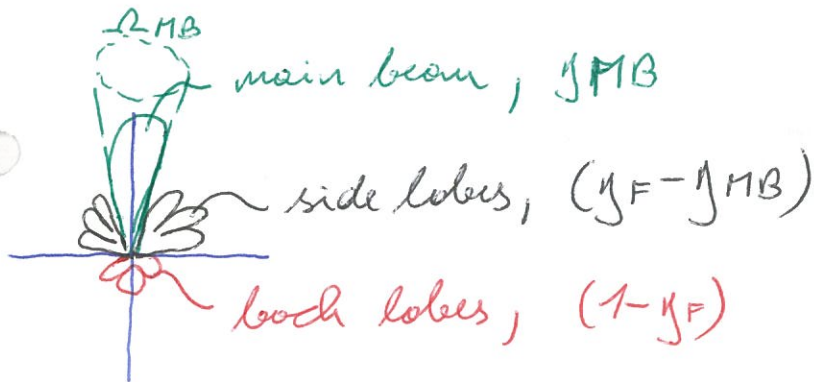 Ω MB
main beam, ηMB
side lobes, (ηF-ηMB)
back lobes, (1-ηF)